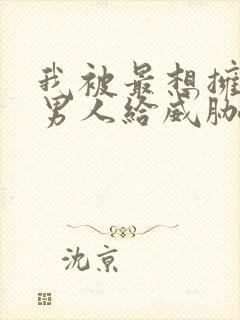 我被最想擁
男人給威脅
沈京